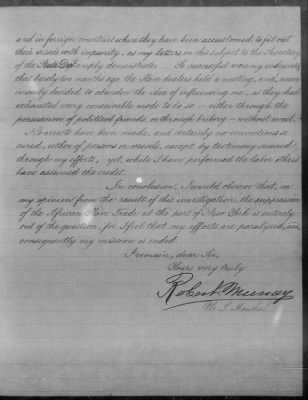 and in foreign countries where they have been accustomed to fit out
their vessels with impunity, as my letters on this subject to the Secretary
of the State Dept. amply demonstrates. So successful was my endeavors
that barely two months ago, the slave dealers held a meeting, and, unan-
imously decided to abandon the idea of influencing me, as they had
exhausted every conceivable mode to do so - either through the
persuasion of political friends, or through bribery - without avail.
No arrests have been made, and certainly no convictions se-
cured, either of persons or vessels, except by testimony secured
through my efforts, yet, while I have performed the labor, others
have assumed the credit.
In conclusion, I would observe that, in
my opinion from the result of this investigation, the suppression
of the African Slave Trade at the port of New York is entirely
out of the question, for I feel that my efforts are paralysed, and,
consequently my mission is ended.
I remain, dear Sir,
Yours very truly
Robert Murray
U. S. Marshal